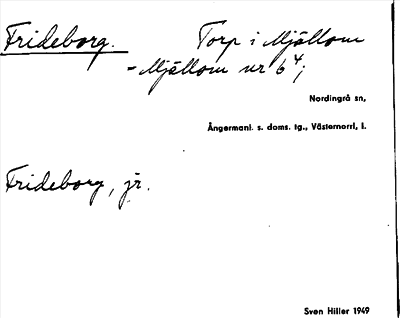 Frideborg. Torp i Mjällom
- Mjällom nr 6⁴;
Nordingrå sn,
Ångermanl. s. doms. tg., Västernorrl, l.
Frideborg, jr.
Sven Hiller 1949